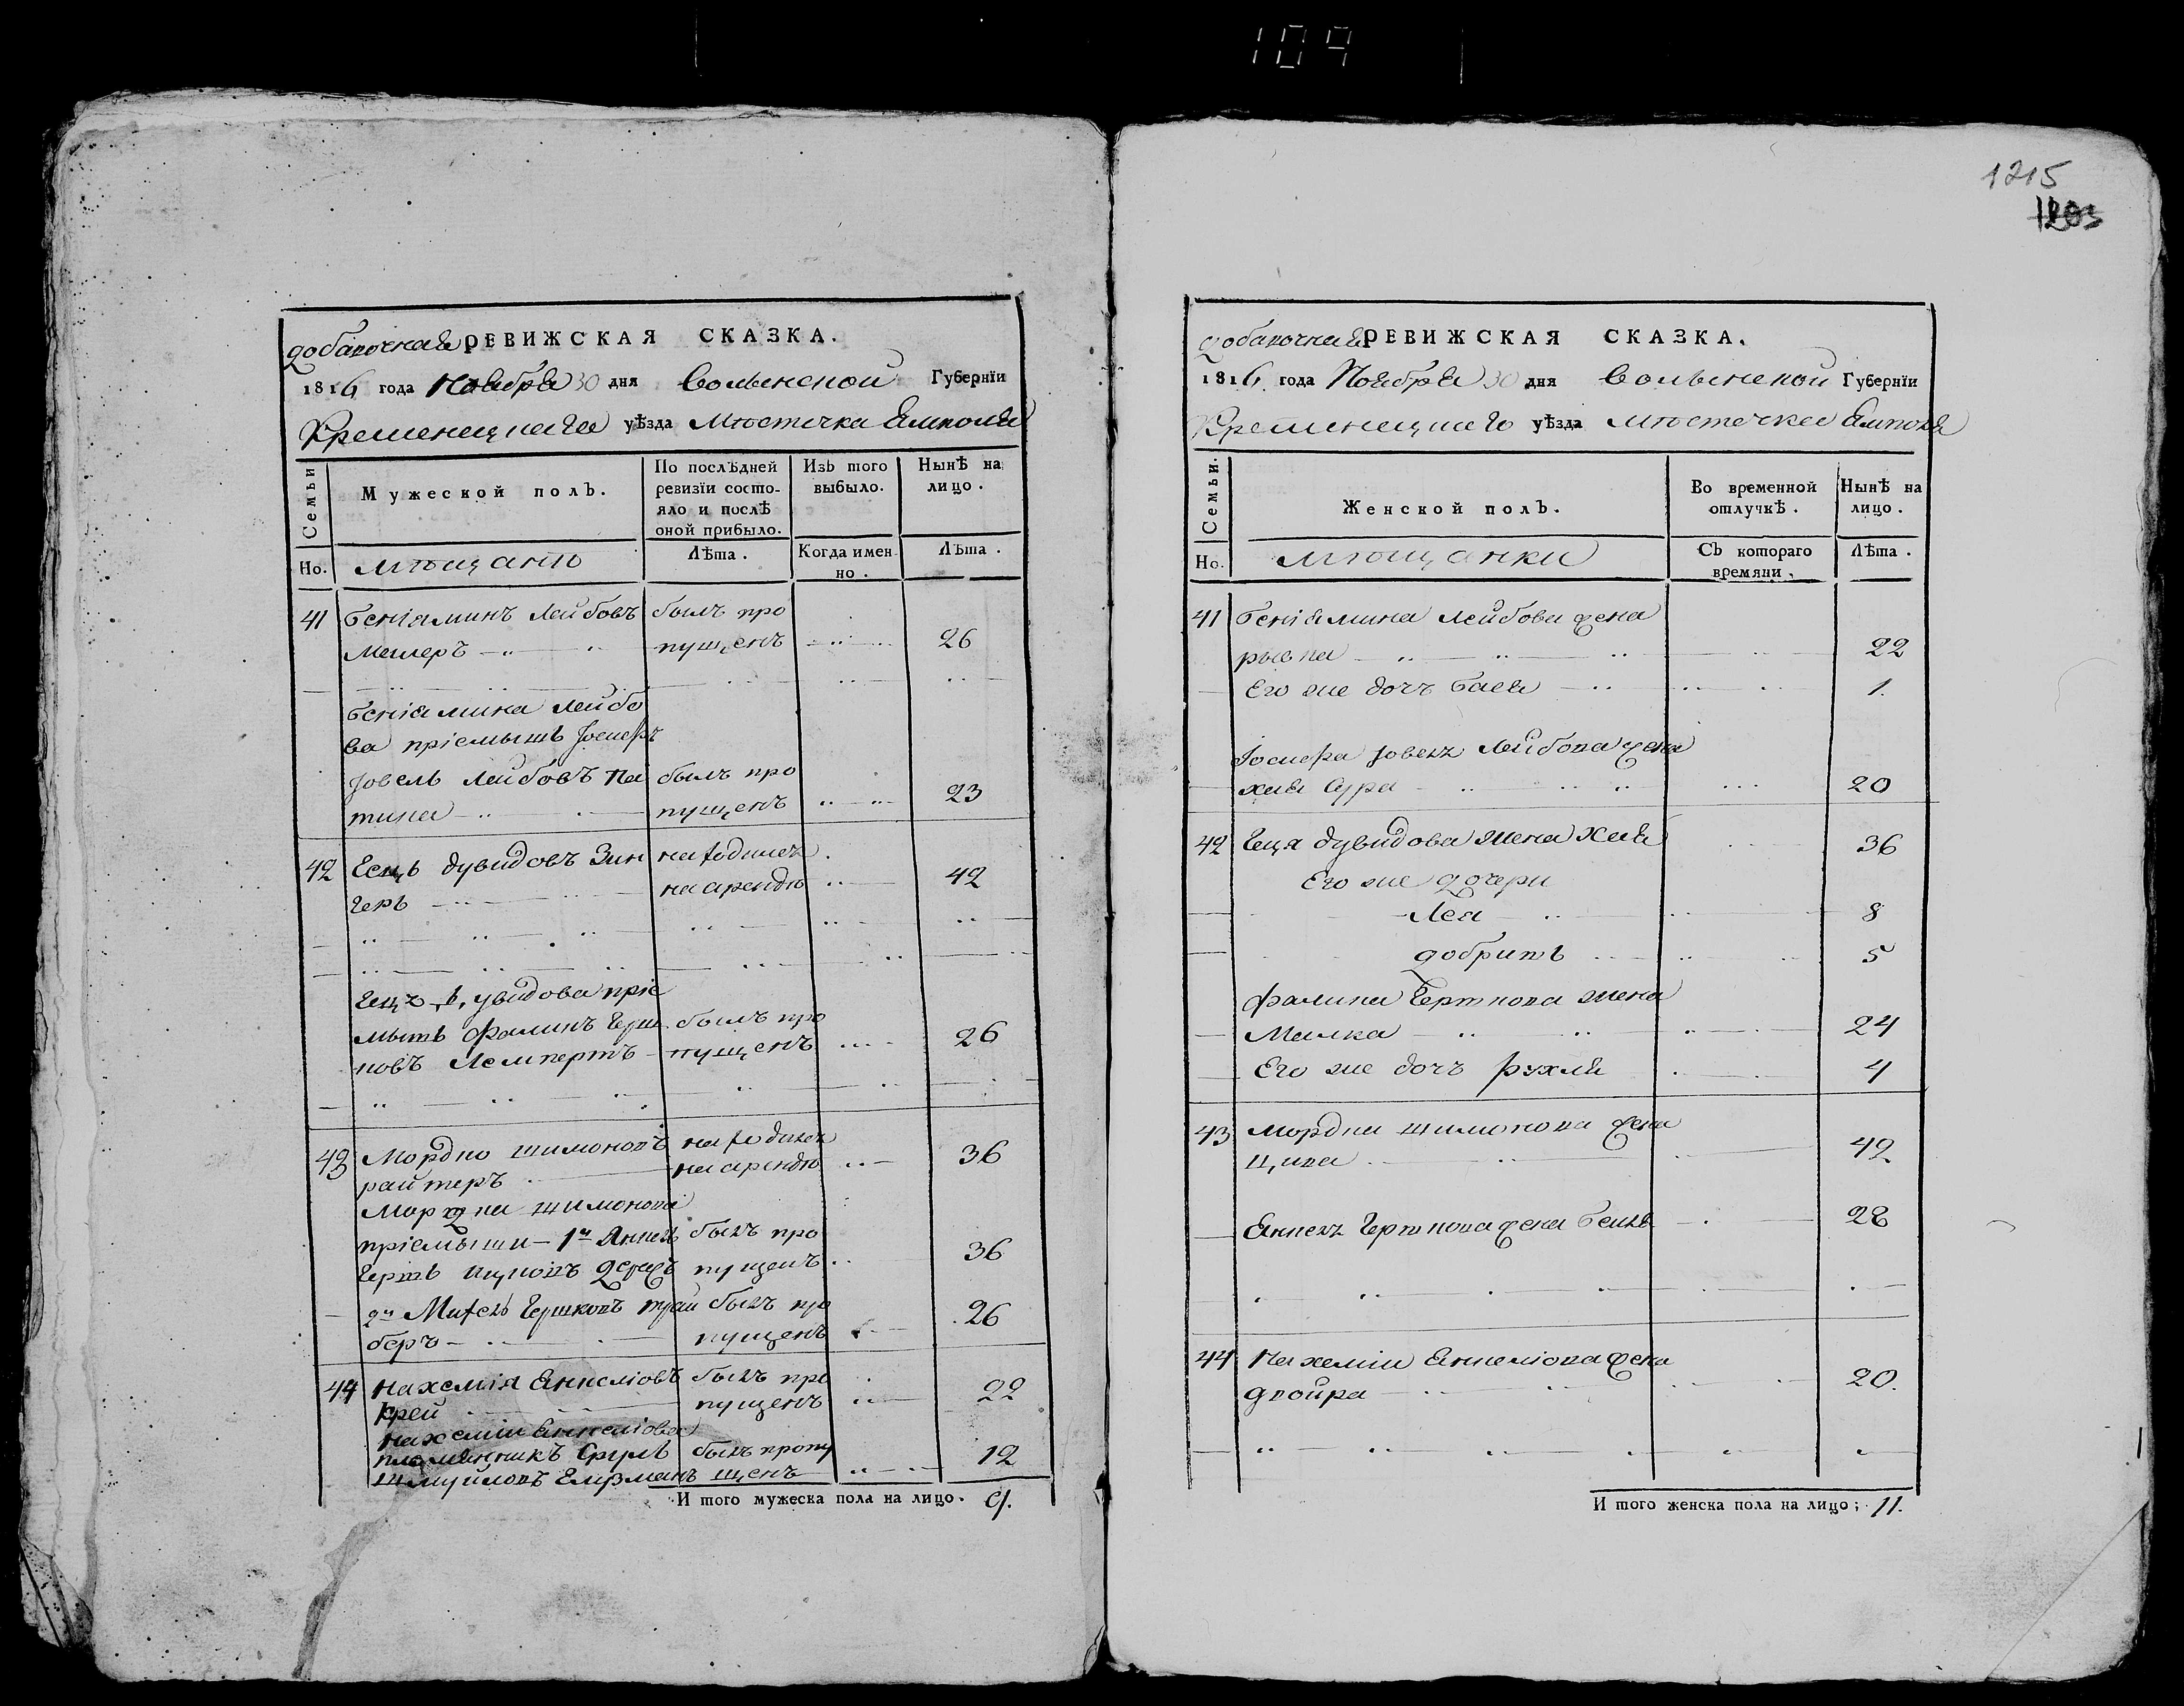 109
1215
1203
добавочная РЕВИЖСКАЯ СКАЗКА.
1816 года Ноября 30 дня Волынской Губернїи
Кременецкаго уѣзда Мѣстечка Ямполя
Семьи
Мужеской полъ.
По послѣдней ревизїи состояло и послѣ оной прибыло.
Изъ того выбыло.
Нынѣ на лицо.
Но.
мѣщанъ
Лѣта.
Когда именно.
Лѣта.
41 Беніяминъ Лейбовъ былъ про
Меллеръ пущенъ 26
Беніямина Лейбо
ва пріемышъ Іосифъ
Іовель Лейбовъ Па былъ про
тина пущенъ 23
42 Гецъ Дувидовъ Зин находился
геръ на арендѣ 42
Гецъ Дувидова пріе
мышъ Фалинъ Герш былъ про
ковъ Лемпертъ пущенъ 26
43 Мордко Шимоновъ находился
райтеръ на арендѣ 36
Мордка Шимонова
пріемыши 1й Янкель былъ про
пущенъ 36
2й Михель Гершковъ трай былъ про
беръ пущенъ 26
44 Нахемія Янкеліовъ былъ про
Крей пущенъ 22
Нахеміи Янкеліова
племянникъ Сруль былъ пропу
Шмуйловъ Елзманъ щенъ 12
И того мужеска пола на лицо. 9.
добавочная РЕВИЖСКАЯ СКАЗКА.
1816 года Ноября 30 дня Волынской Губернїи
Кременецкаго уѣзда Мѣстечка Ямполя
Семьи.
Женской полъ.
Во временной отлучкѣ.
Нынѣ на лицо.
Но.
мѣщанки
Съ котораго времяни.
Лѣта.
41 Беніямина Лейбова жена
рывка 22
Его же дочь Бася 1.
Іосифа Іовель Лейбова жена
хая Сура 20
42 Геця Дувидова жена Хая 36
Его же дочери
Лея 8
добришъ 5
Фалина Гершкова жена
Малка 24
Его же дочь рухля 4
43 Мордка Шимонова жена
Ципа 42
Янкель Гершкова жена Бейля 28
44 Нахеміи Янкеліова жена
двойра 20.
И того женска пола на лицо; 11.